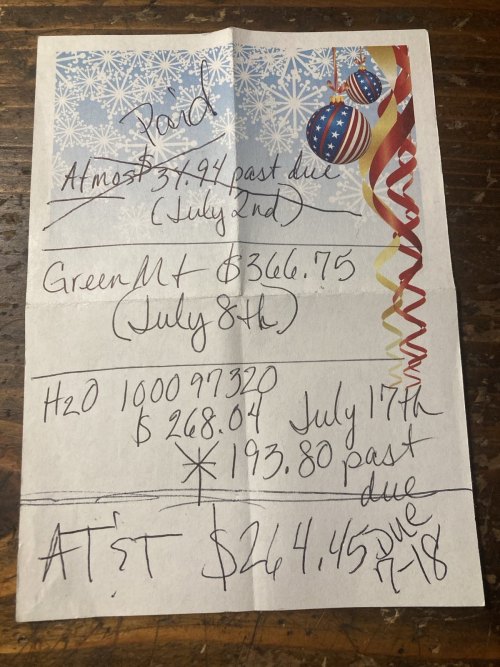 Paid
Atmos $34.94 past due
(July 2nd)
Green Mt $366.75
(July 8th)
H2O 100097320
$268.04 July 17th
* 193.80 past
due
AT&T $264.45 Due
7-18